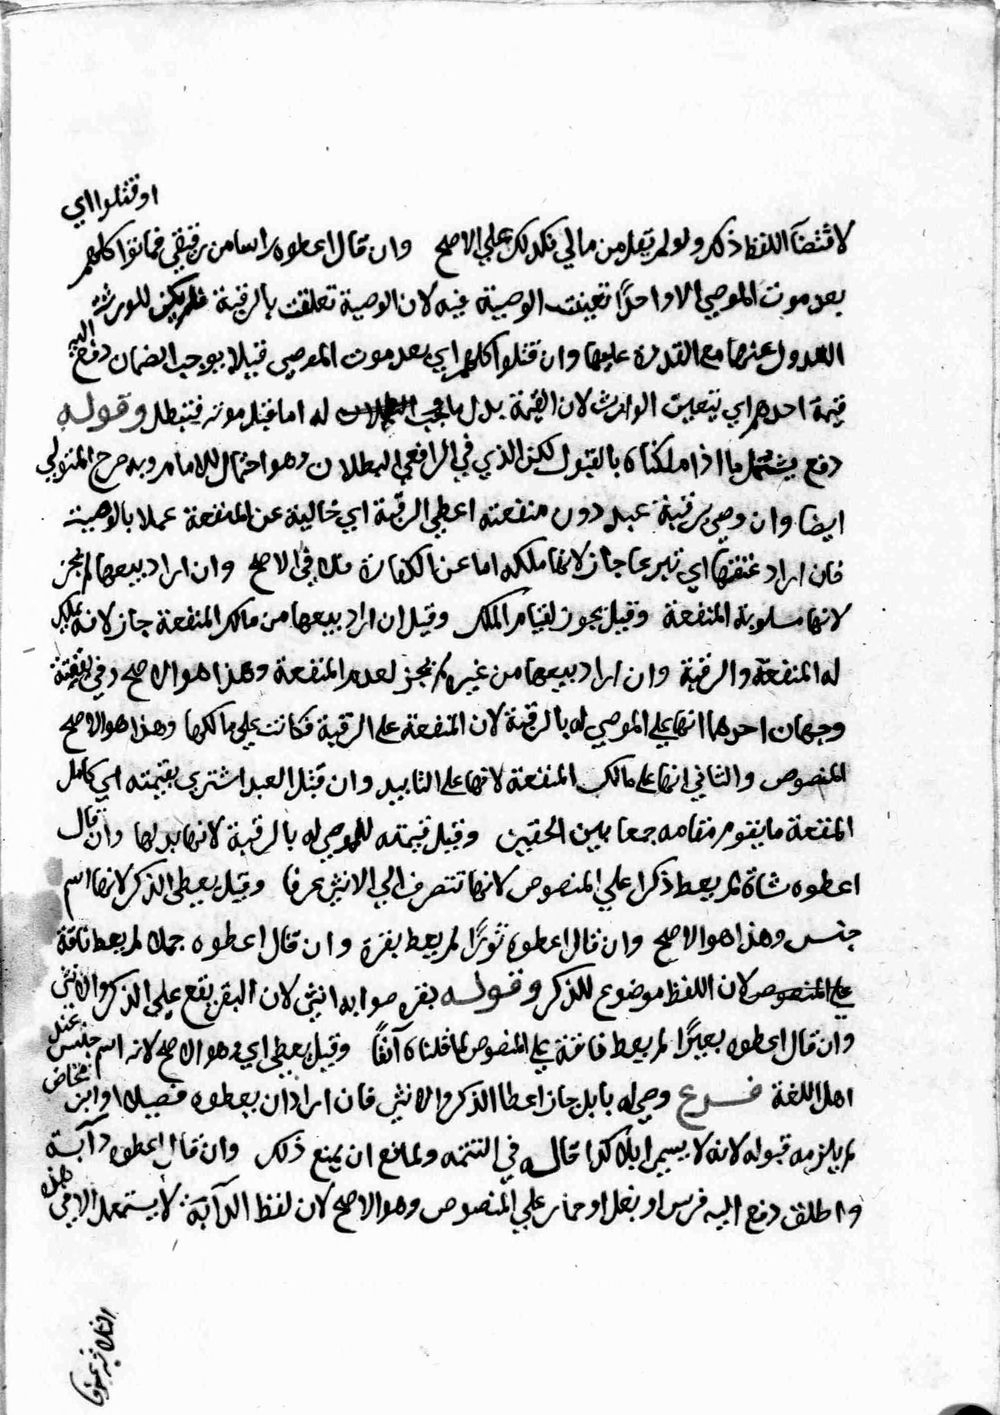 او قتلوا اي
لاقتضا اللفظ ذكر ولو لم يقل من مالي فكذلك علي الاصح وان قال اعطوه راسا من رقيقي فماتوا كلهم
بعد موت الموصي الا واحدًا تعينت الوصية فيه لان الوصية تعلقت بالرقبة فلم يكن للورثة
العدول عنها مع القدرة عليها وان قتلوا كلهم اي بعد موت الموصي قتيلا يوجب الضمان دفع اليه
قيمة احدهم اي بتعيين الوارث لان القيمة بدل ما له اما قبل موته فتبطل وقوله
دفع يشتمل ما اذا ملكناه بالقبول لكن الذي في الرافعي البطلان وهو احتمال للامام وبه صرح المتولي
ايضا وان وصي برقبة عبد دون منفعته اعطي الرقبة اي خالية عن المنفعة عملا بالوصية
فان اراد عتقها اي تبرعا جاز لانها ملكه اما عن الكفارة فلا في الاصح وان اراد بيعها لم يجز
لانها مسلوبة المنفعة وقيل يجوز لقيام الملك وقيل ان اراد بيعها من مالك المنفعة جاز لانه يملك
له المنفعة والرقبة وان اراد بيعها من غيره لم يجز لعدم المنفعة وهذا هو الاصح وفي نفقته
وجهان احدهما انها علي الموصي له بالرقبة لان المنفعة على الرقبة فكانت علي مالكها وهذا هو الاصح
المنصوص والثاني انها على مالك المنفعة لانها على التابيد وان قتل العبد اشتري بقيمته اي كامل
المنفعة ما يقوم مقامه جمعا بين الحقين وقيل قيمته للموصي له بالرقبة لانها بدلها وان قال
اعطوه شاة لم يعط ذكرا علي المنصوص لانها تنصرف الي الانثي عرفا وقيل يعطي الذكر لانها اسم
جنس وهذا هو الاصح وان قال اعطوه ثورًا لم يعط بقرة وان قال اعطوه جملا لم يعط ناقة
علي المنصوص لان اللفظ موضوع للذكر وقوله بقره صوابه انثي لان البقر يقع علي الذكر والانثي
وان قال اعطوه بعيرًا لم يعط ناقة علي المنصوص لما قلناه آنفًا وقيل يعطي اي وهو الاصح لانه اسم جنس عند
اهل اللغة فرع وصي له بابل جاز اعطا الذكر والانثي فان اراد ان يعطوه فصيلا او ابن مخاض
لم يلزمه قبوله لانه لا يسمي ابلا كذا قاله في التتمه ولمانع ان يمنع ذلك وان قال اعطوه دآبة
واطلق دفع اليه فرس او بغل او حمار علي المنصوص وهو الاصح لان لفظ الدآبة لا يستعمل الا في هذه